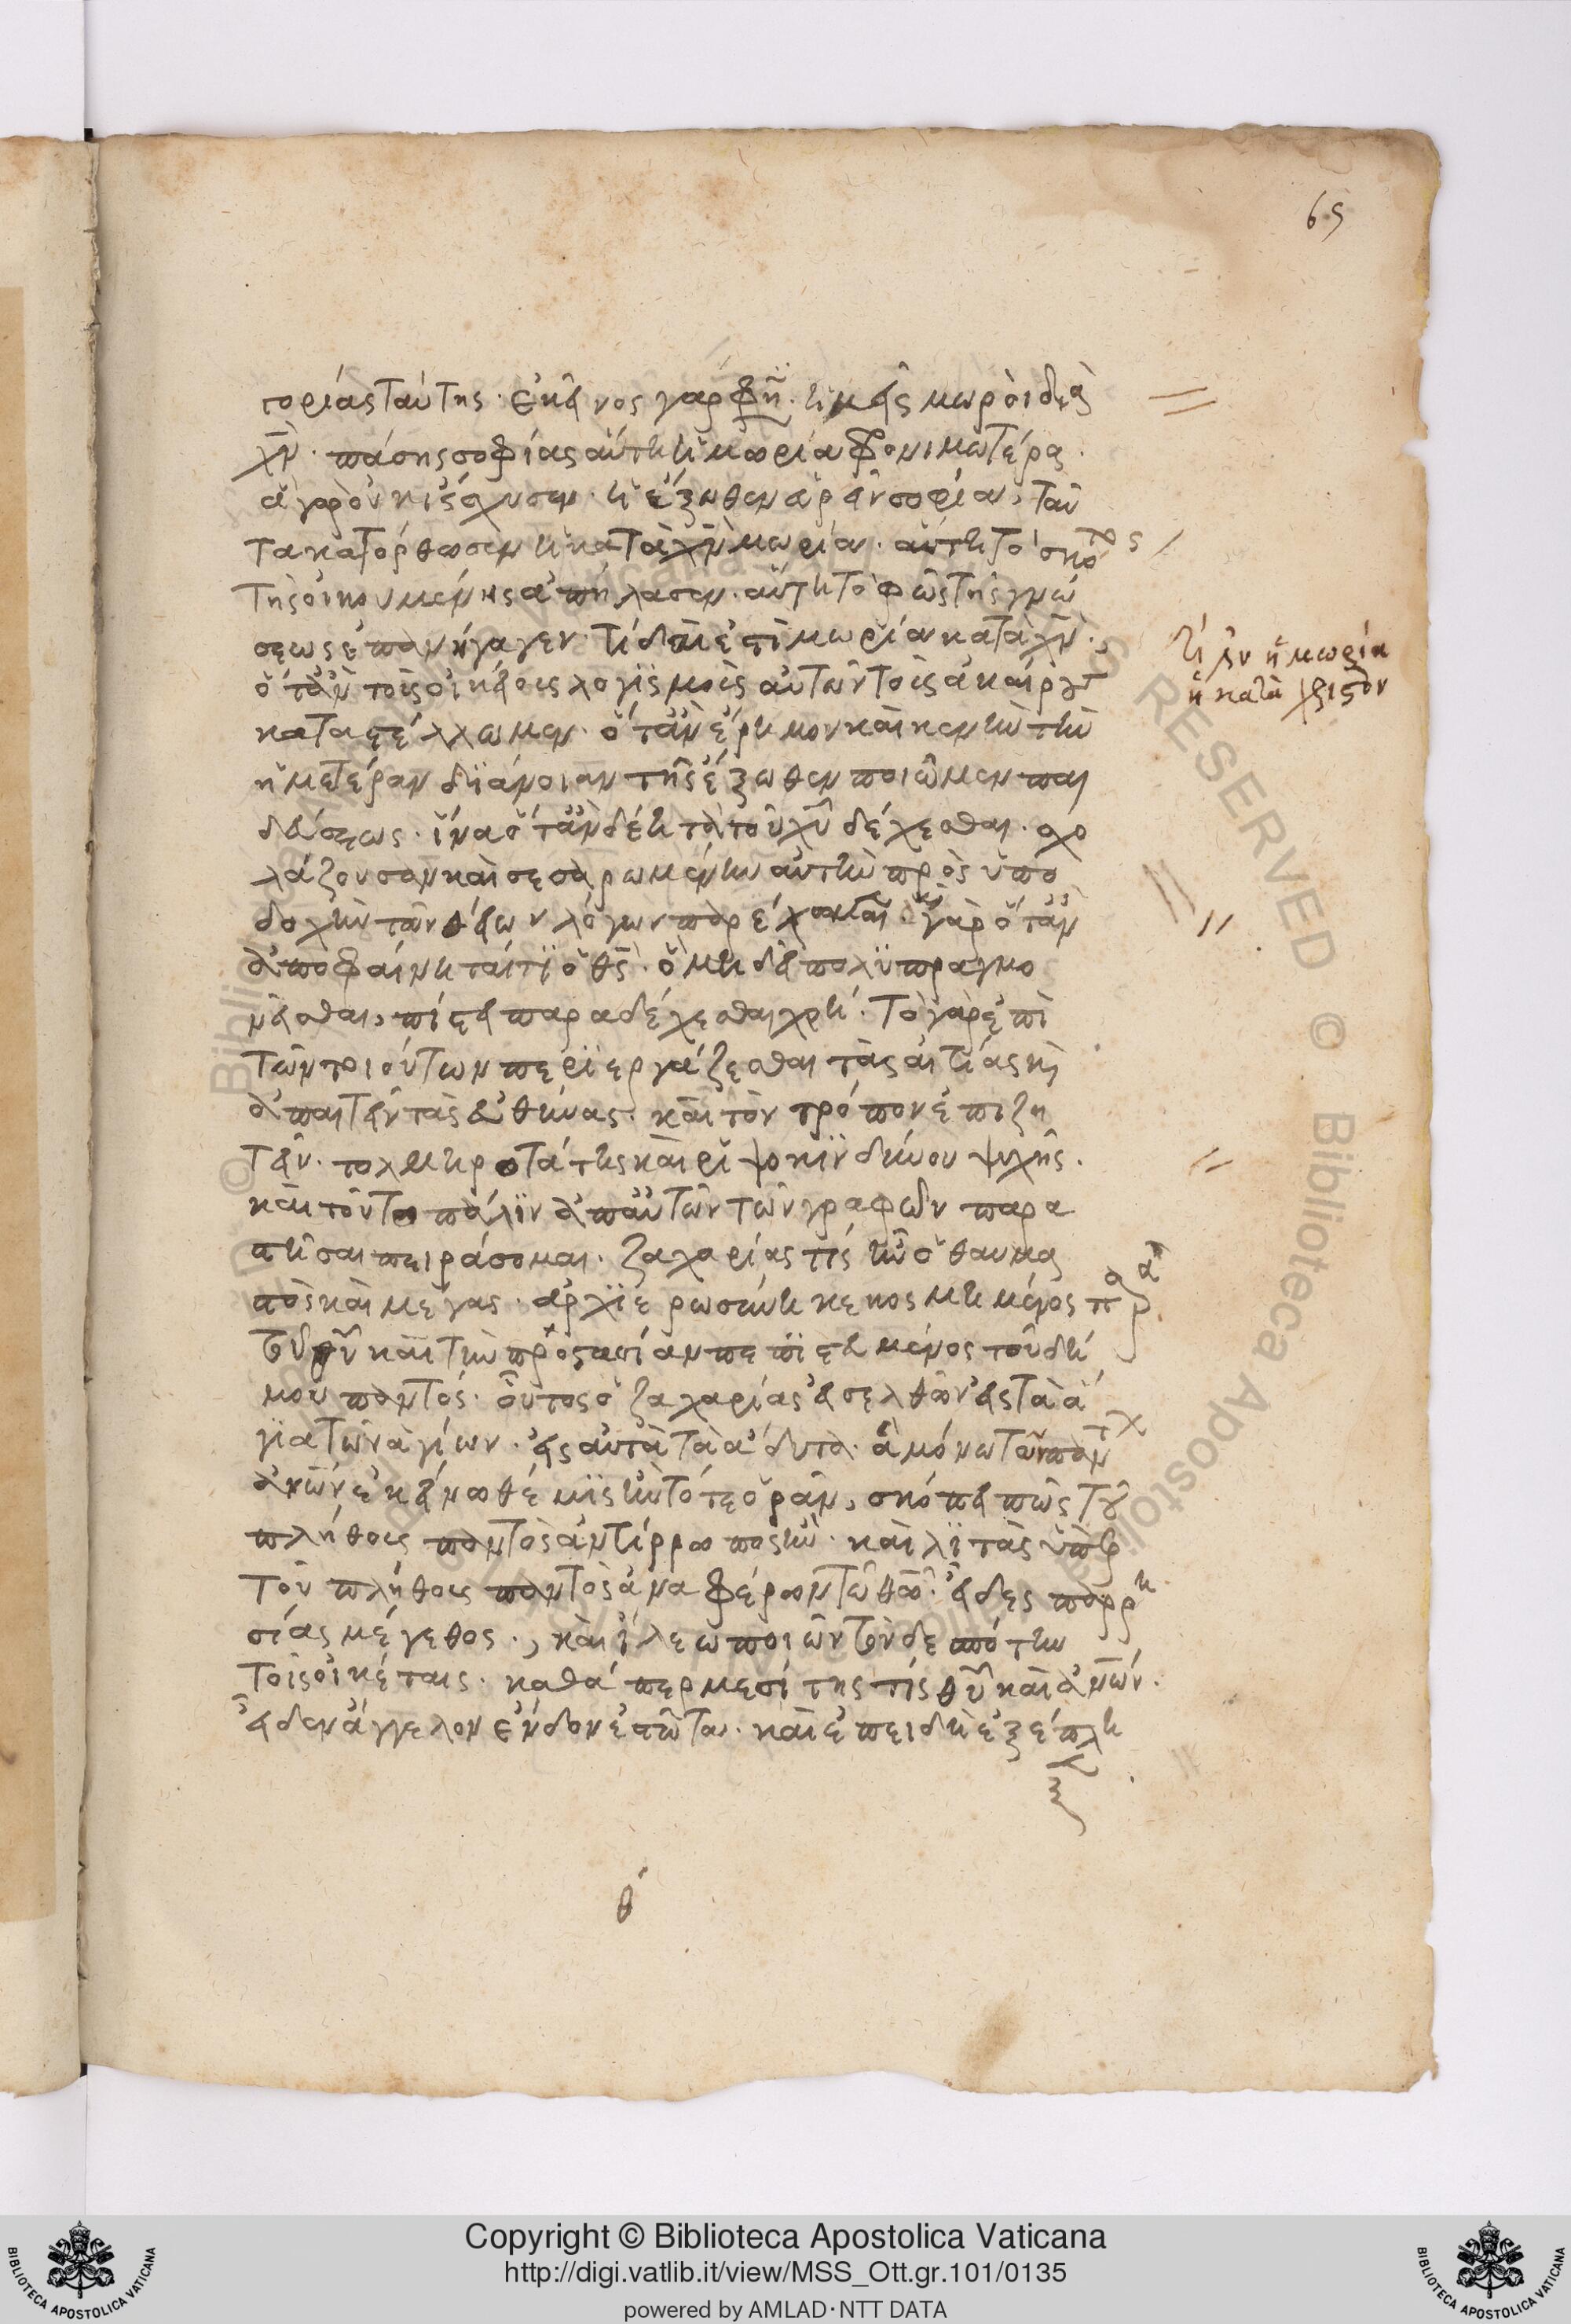 65
τορίας ταύτης· ἐκεῖνος γάρ φη· ἡμεῖς μωροὶ διὰ
χν· πάσης σοφίας αὕτη ἡ μωρία φρονιμωτέρα·
ἃ γὰρ οὐκ ἴσχυσεν ἡ ἔξωθεν εὑρεῖν σοφία, ταῦ
τα κατόρθωσεν ἡ κατὰ χν μωρία· αὕτη τὸ σκότος
τῆς οἰκουμένης ἀπήλασεν· αὕτη τὸ φῶς τῆς γνώ
σεως ἐπανήγαγεν· τί δαί ἐστι μωρία κατὰ χν·
ὅταν τοὺς οἰκείους λογισμοὺς αὐτῶν τοὺς ἀκαίρους
καταστέλλωμεν· ὅταν ἔρημον καὶ κενὴν τὴν
ἡμετέραν διάνοιαν τῆς ἔξωθεν ποιῶμεν παι
δεύσεως· ἵνα ὅταν δέη τὰ τοῦ χυ δέχεσθαι· σχο
λάζουσαν καὶ σεσαρωμένην αὐτὴν πρὸς ὑπο
δοχὴν τῶν θείων λόγων παρέχωνται· καὶ γὰρ ὅταν
ἀποφαίνηταί τι ὁ θς· ὃ μὴ δεῖ πολυπραγμο
νεῖσθαι, πίστει παραδέχεσθαι χρή· τὸ γὰρ ἐπὶ
τῶν τοιούτων περιεργάζεσθαι τὰς αἰτίας καὶ
ἀπαιτεῖν τὰς εὐθύνας· καὶ τὸν τρόπον ἐπιζη
τεῖν· τολμηροτάτης καὶ ριψοκινδύνου ψυχῆς·
καὶ τοῦτο πάλιν ἀπ' αὐτῶν τῶν γραφῶν παρα
στῆσαι πειράσομαι· ζαχαρίας τίς ἦν ὁ θαυμα
στὸς καὶ μέγας· ἀρχιερωσύνη κεκοσμημένος παρὰ
τοῦ θυ καὶ τὴν προστασίαν πεπιστευμένος τοῦ δή
μου παντός· οὗτος ὁ ζαχαρίας εἰσελθὼν εἰς τὰ ἅ
για τῶν ἁγίων· εἰς αὐτὰ τὰ ἄδυτα· ἃ μόνω τῶν πάντων
ἀνων ἐκείνω θέμις ἦν τότε ὁρᾶν, σκόπει πῶς τοῦ
πλήθους παντὸς ἀντίρροπος ἦν· καὶ λιτὰς ὑπὲρ
τοῦ πλήθους παντὸς ἀναφέρων τῶ θω· εἶδες παρρη
σίας μέγεθος·, καὶ ἵλεω ποιῶν τὸν δεσπότην
τοῖς οἰκέταις· καθάπερ μεσίτης τίς θυ καὶ ἀνων·
εἶδεν ἄγγελον ἔνδον ἑστῶτα· καὶ ἐπειδὴ ἐξεπλή
τί ἐν ἡ μωρία
ἡ κατὰ χριστὸν
θ
Copyright © Biblioteca Apostolica Vaticana
http://digi.vatlib.it/view/MSS_Ott.gr.101/0135
powered by AMLAD·NTT DATA
BIBLIOTECA APOSTOLICA VATICANA
BIBLIOTECA APOSTOLICA VATICANA